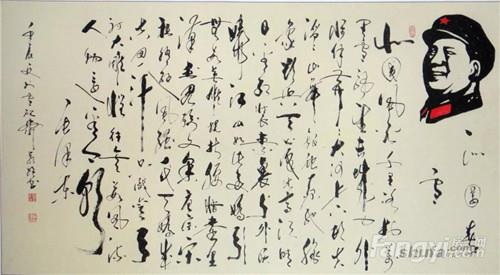 沁园春
雪
北国风光千里冰封万
里雪飘望长城内外
惟余莽莽大河上下顿失
滔滔山舞银蛇原驰蜡
象欲与天公试比高须晴
日看红装素裹分外妖
娆江山如此多娇引
无数英雄竞折腰惜秦皇
汉武略输文采唐宗宋
祖稍逊风骚一代天骄成
吉思汗只识弯弓
射大雕俱往矣数风流
人物还看今朝
毛泽东
壬辰